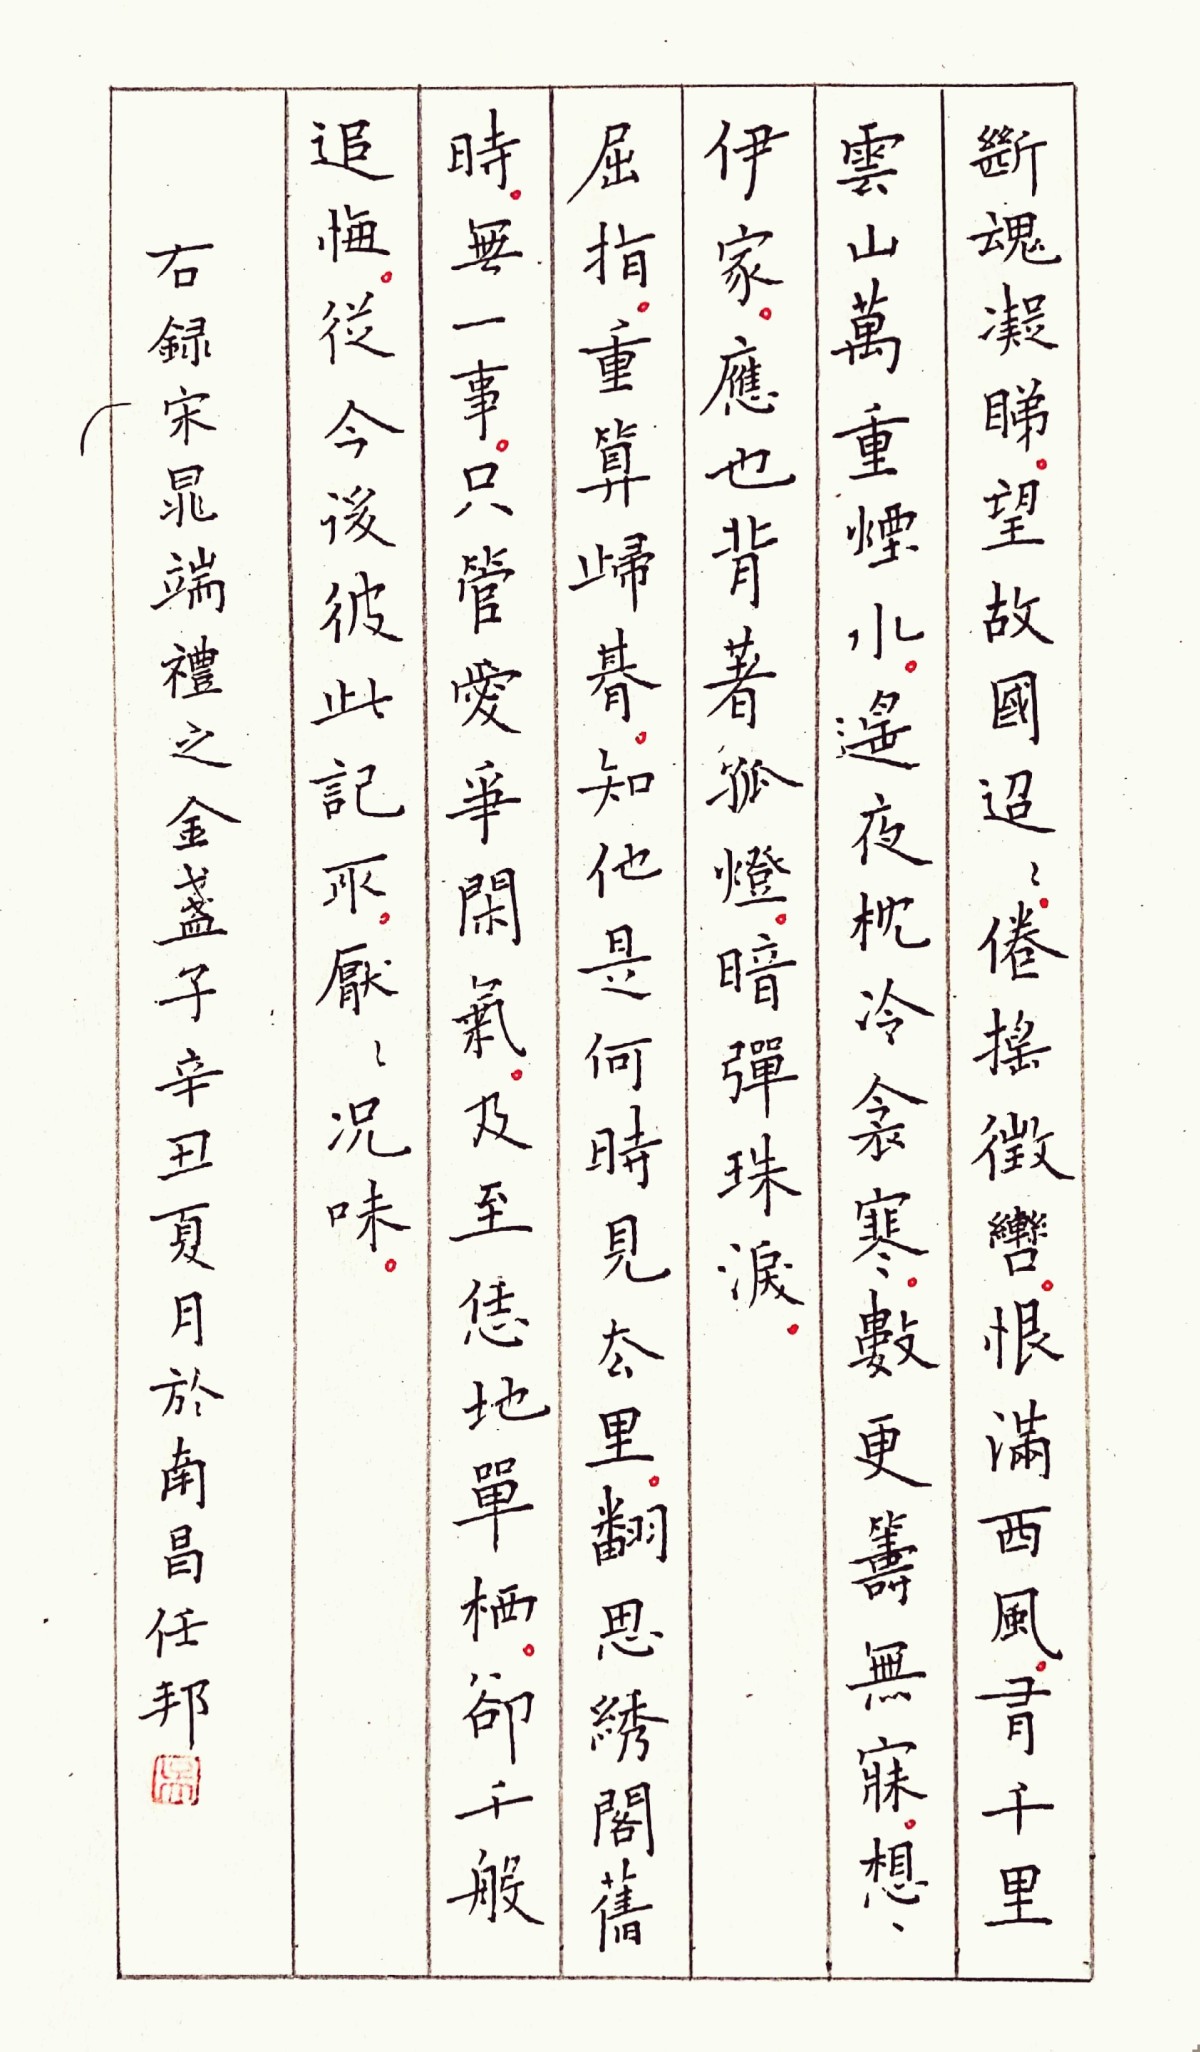 斷魂凝睇。望故國迢〻。倦搖徵轡。恨滿西風。有千里
雲山萬重煙水。遙夜枕冷衾寒。數更籌無寐。想〻
伊家。應也背著孤燈。暗彈珠淚。
屈指。重算歸期。知他是何時見去里。翻思綉閣舊
時。無一事。只管愛爭閑氣。及至恁地單栖。卻千般
追悔。從今後彼此記取。厭〻况味。
右録宋晁端禮之金盞子辛丑夏月於南昌任邦